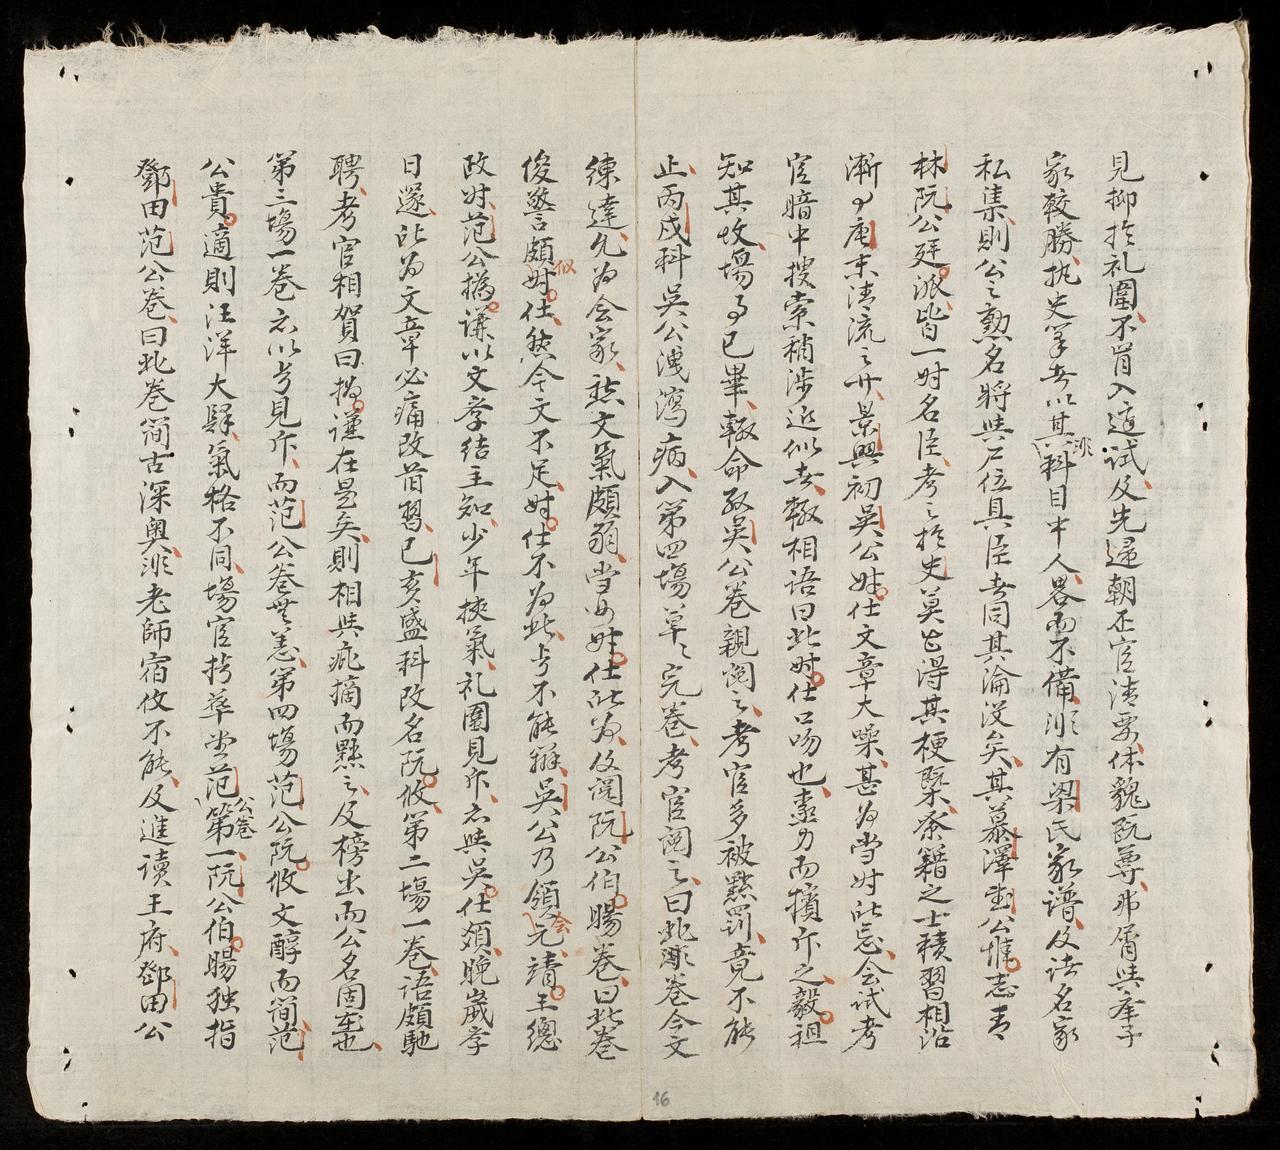 見抑於礼圍不肯入這試及先遥朝丕官清要体貌既尊弗屑與奉子
家較勝执史筆者以其非科目中人畧而不備順有梁氏家譜及諸名家
私集則公之勲名將與尸位具臣者同其淪没矣其慕澤堂公惟志青
林阮公廷派皆一时名臣考之於史莫止得其梗槩夆籍之士積習相沿
漸了庚末清流之廾景興初吳公妕仕文章大噪甚為当时所忌会試考
官暗中搜索稍涉近似者輙相語曰此妕仕口吻也盡力而擯斥之毅祖
知其攷場了已畢輙命取吳公卷親阅之考官多被黜罰竟不能
止丙戌科吳公洩瀉病入第四場草〻完卷考官阅之曰此澉卷今文
練達允為会家然文氣頗弱当如妕仕所为及阅阮公伯暘卷曰此卷
俊警頗似妕仕然今文不足妕仕不为此考不能辯吳公乃領会元靖王總
政时范公撝谦以文孛结主知少年挾氣礼圍見斥亦與吳仕頒晚歲孛
日邃所为文章必痛改前習己亥盛科改名阮攸第二場一卷语頗馳
騁考官相賀曰撝谦在是矣則相與疵摘而黜之及榜出而公名固在也
第三場一卷亦以夸見斥而范公卷無恙第四場范公阮攸文醇而簡范
公貴適則汪洋大肆氣格不同場官抡萃坐范公卷第一阮公伯暘独指
鄧田范公卷曰此卷簡古深奥非老師宿攸不能及進读王府鄧田公